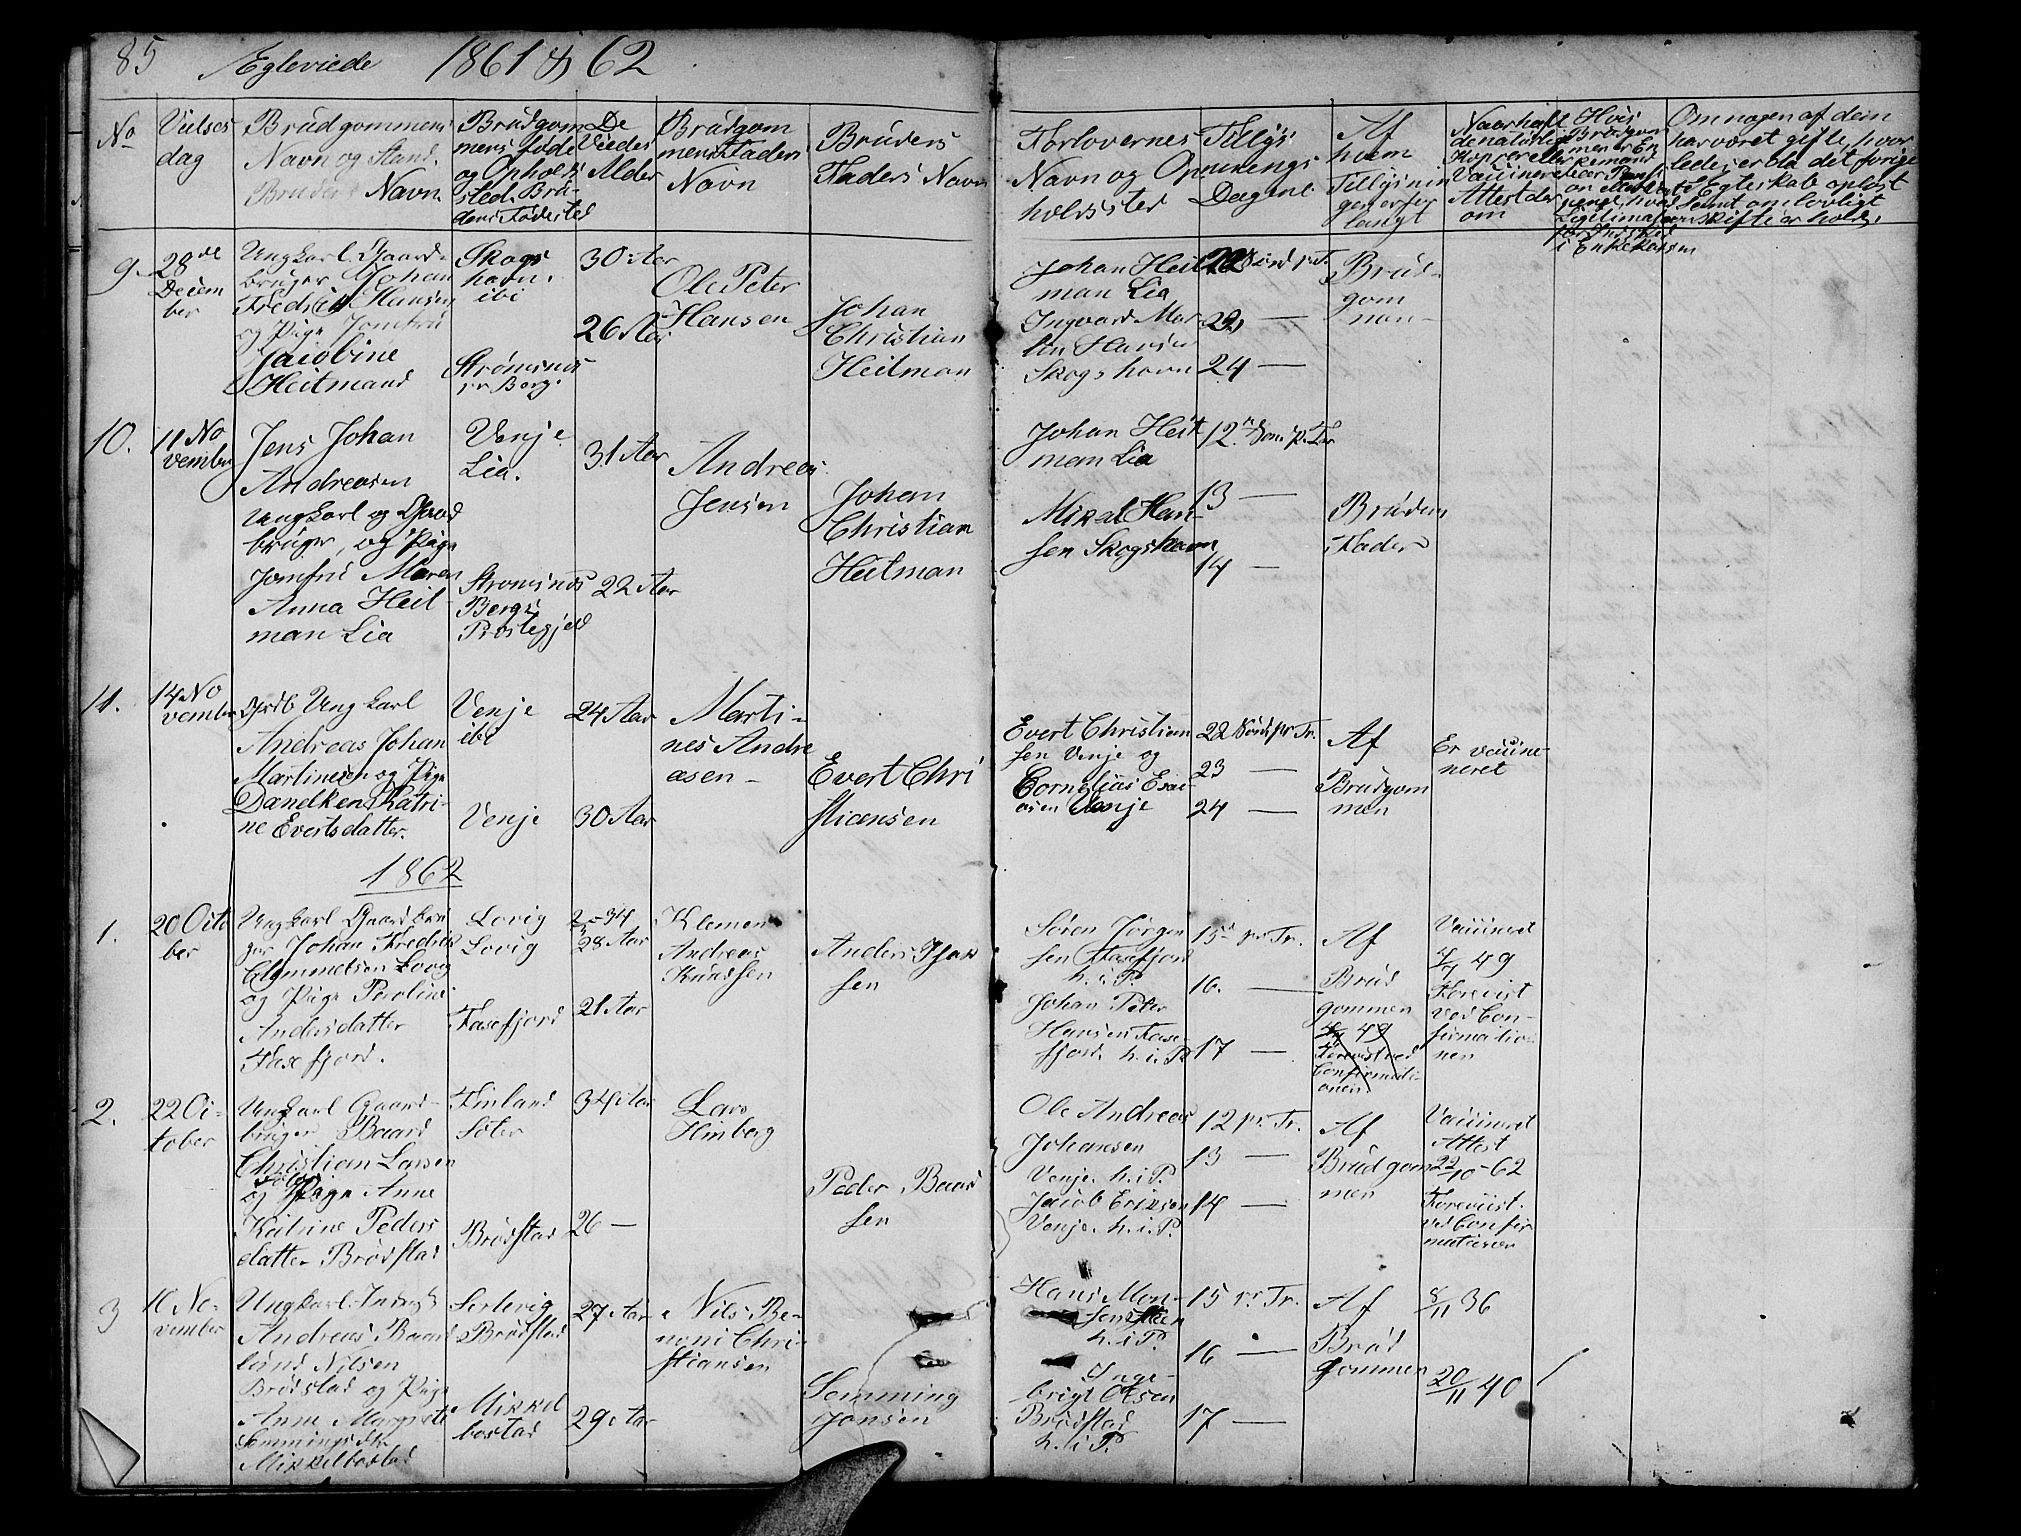 85 Egteviede 1861 & 62
No
Vielses
dag
Brudgommens
Navn og Stand.
Brudens Navn.
Brudgom
mens føde
og Opholds
sted. Bru-
dens Fødested
De
Viedes
Alder
Brudgom
mens Faders
Navn
Brudens
Faders Navn
Forlovernes
Navn og Op-
holdssted
Tillys
nings
Dagene
Af
hvem
Tillysnin
gen er for
langt
Naar havt
de naturlige
Kopper eller
Vaccineret
Attest der
om
Hvis
Brudgom
men er
i Enkekassen
Om nogen af dem
har været gifte, hvor
ledes er da det forige
Egteskab opløst
samt om lovligt
skifte er holdt.
9.
28de
Decem
ber
Ungkarl Gaard-
bruger Johan
Fredrik Hansen
og Pige Jomfru
Jacobine
Heitmand
Skogs
havn.
ibi
Strømsnes
Berg.
30 Aar
26 Aar
Ole Peter
Hansen
Johan
Christian
Heitman
Johan Heit
man Lia
Ingvard Mar
tin Hansen
Skogshavn
22 Sønd p. Tr.
22 —
24 —
Brud-
gom
men-
10.
11 No
vember
Jens Johan
Andreasen
Ungkarl og Gaard
bruger, og Pige
Jomfru Maren
Anna Heit
man Lia
Venje
Lia.
Strømsnes
Bergs
Præstegjeld
31 Aar
22 Aar
Andreas
Jensen
Johan
Christian
Heitman
Johan Heit
man Lia
Mikal Han-
sen Skogshavn
12te Søn. p. Tr
13 —
14 —
Brudens
Fader
11.
14 No
vember
Ungkarl
Andreas Johan
Martinsen og Pige
Danelken Katri-
ne Evertsdatter.
Venje
ibi
Venje
24 Aar
30 Aar
Marti-
nes Andre
asen -
Evert Chri
stiansen
Evert Christian
sen Venje og
Cornelias Esai-
asen Venje
22 Sønd p Tr.
23 —
24 —
Af
Brudgom
men
Er vacine-
neret
1862
1.
20 Octo
ber
Ungkarl Gaardbru
ger Johan Fredrik
Clemmetsen Lovig
og Pige Paroline
Andersdatter
Faxefjord.
Lovig
Lovig
Faxefjord
28 Aar
21 Aar
Klemen
Andreas
Knudsen
Anders Isak
sen
Søren Jørgen
sen Faxefjord
h. i P.
Johan Peter
Hansen Faxe-
fjord. h. i. P.
15d p. Tr.
16. —
17 —
Af
Brud
gommen
49
Forevist ved
Confirmati-
onen
Vaccineret
4/7 49
Forevist
ved Con-
firmatio-
nen
2.
22 Oc-
tober
Ungkarl Gaard-
bruger Baard
Christian Larsen
og Pige Anne
Katrine Peders
datter Brødstad
Finland
Søter
Brødstad
34 Aar
26 —
Lars
Himberg
Peder Baard
sen
Ole Andreas
Johansen
Venje h. i P.
Jacob Eriksen
Venje. h. i. P.
12 p. Tr.
13 —
14 —
Af
Brudgom
men
Vaccineret
Attest
22/10-62
Foreviist.
ved Confir
mationen
3
10 No-
vember
Ungkarl Inderst
Andreas Baard
lund Nilsen
Brødstad og Pige
Anne Margrete
Semmingsdtr
Mikkelbostad
Serlevig
Brødstad
Mikkel
bostad
27 Aar
29 Aar
Nils Be-
noni Chri-
stiansen
Semming
Jonsen
Hans Mon-
sen
h. i P.
Inge-
brigt Olsen
Brødstad
h. i P.
15 p. Tr.
16 —
17 —
Af
Brud
gommen
8/11 36
20/11 40